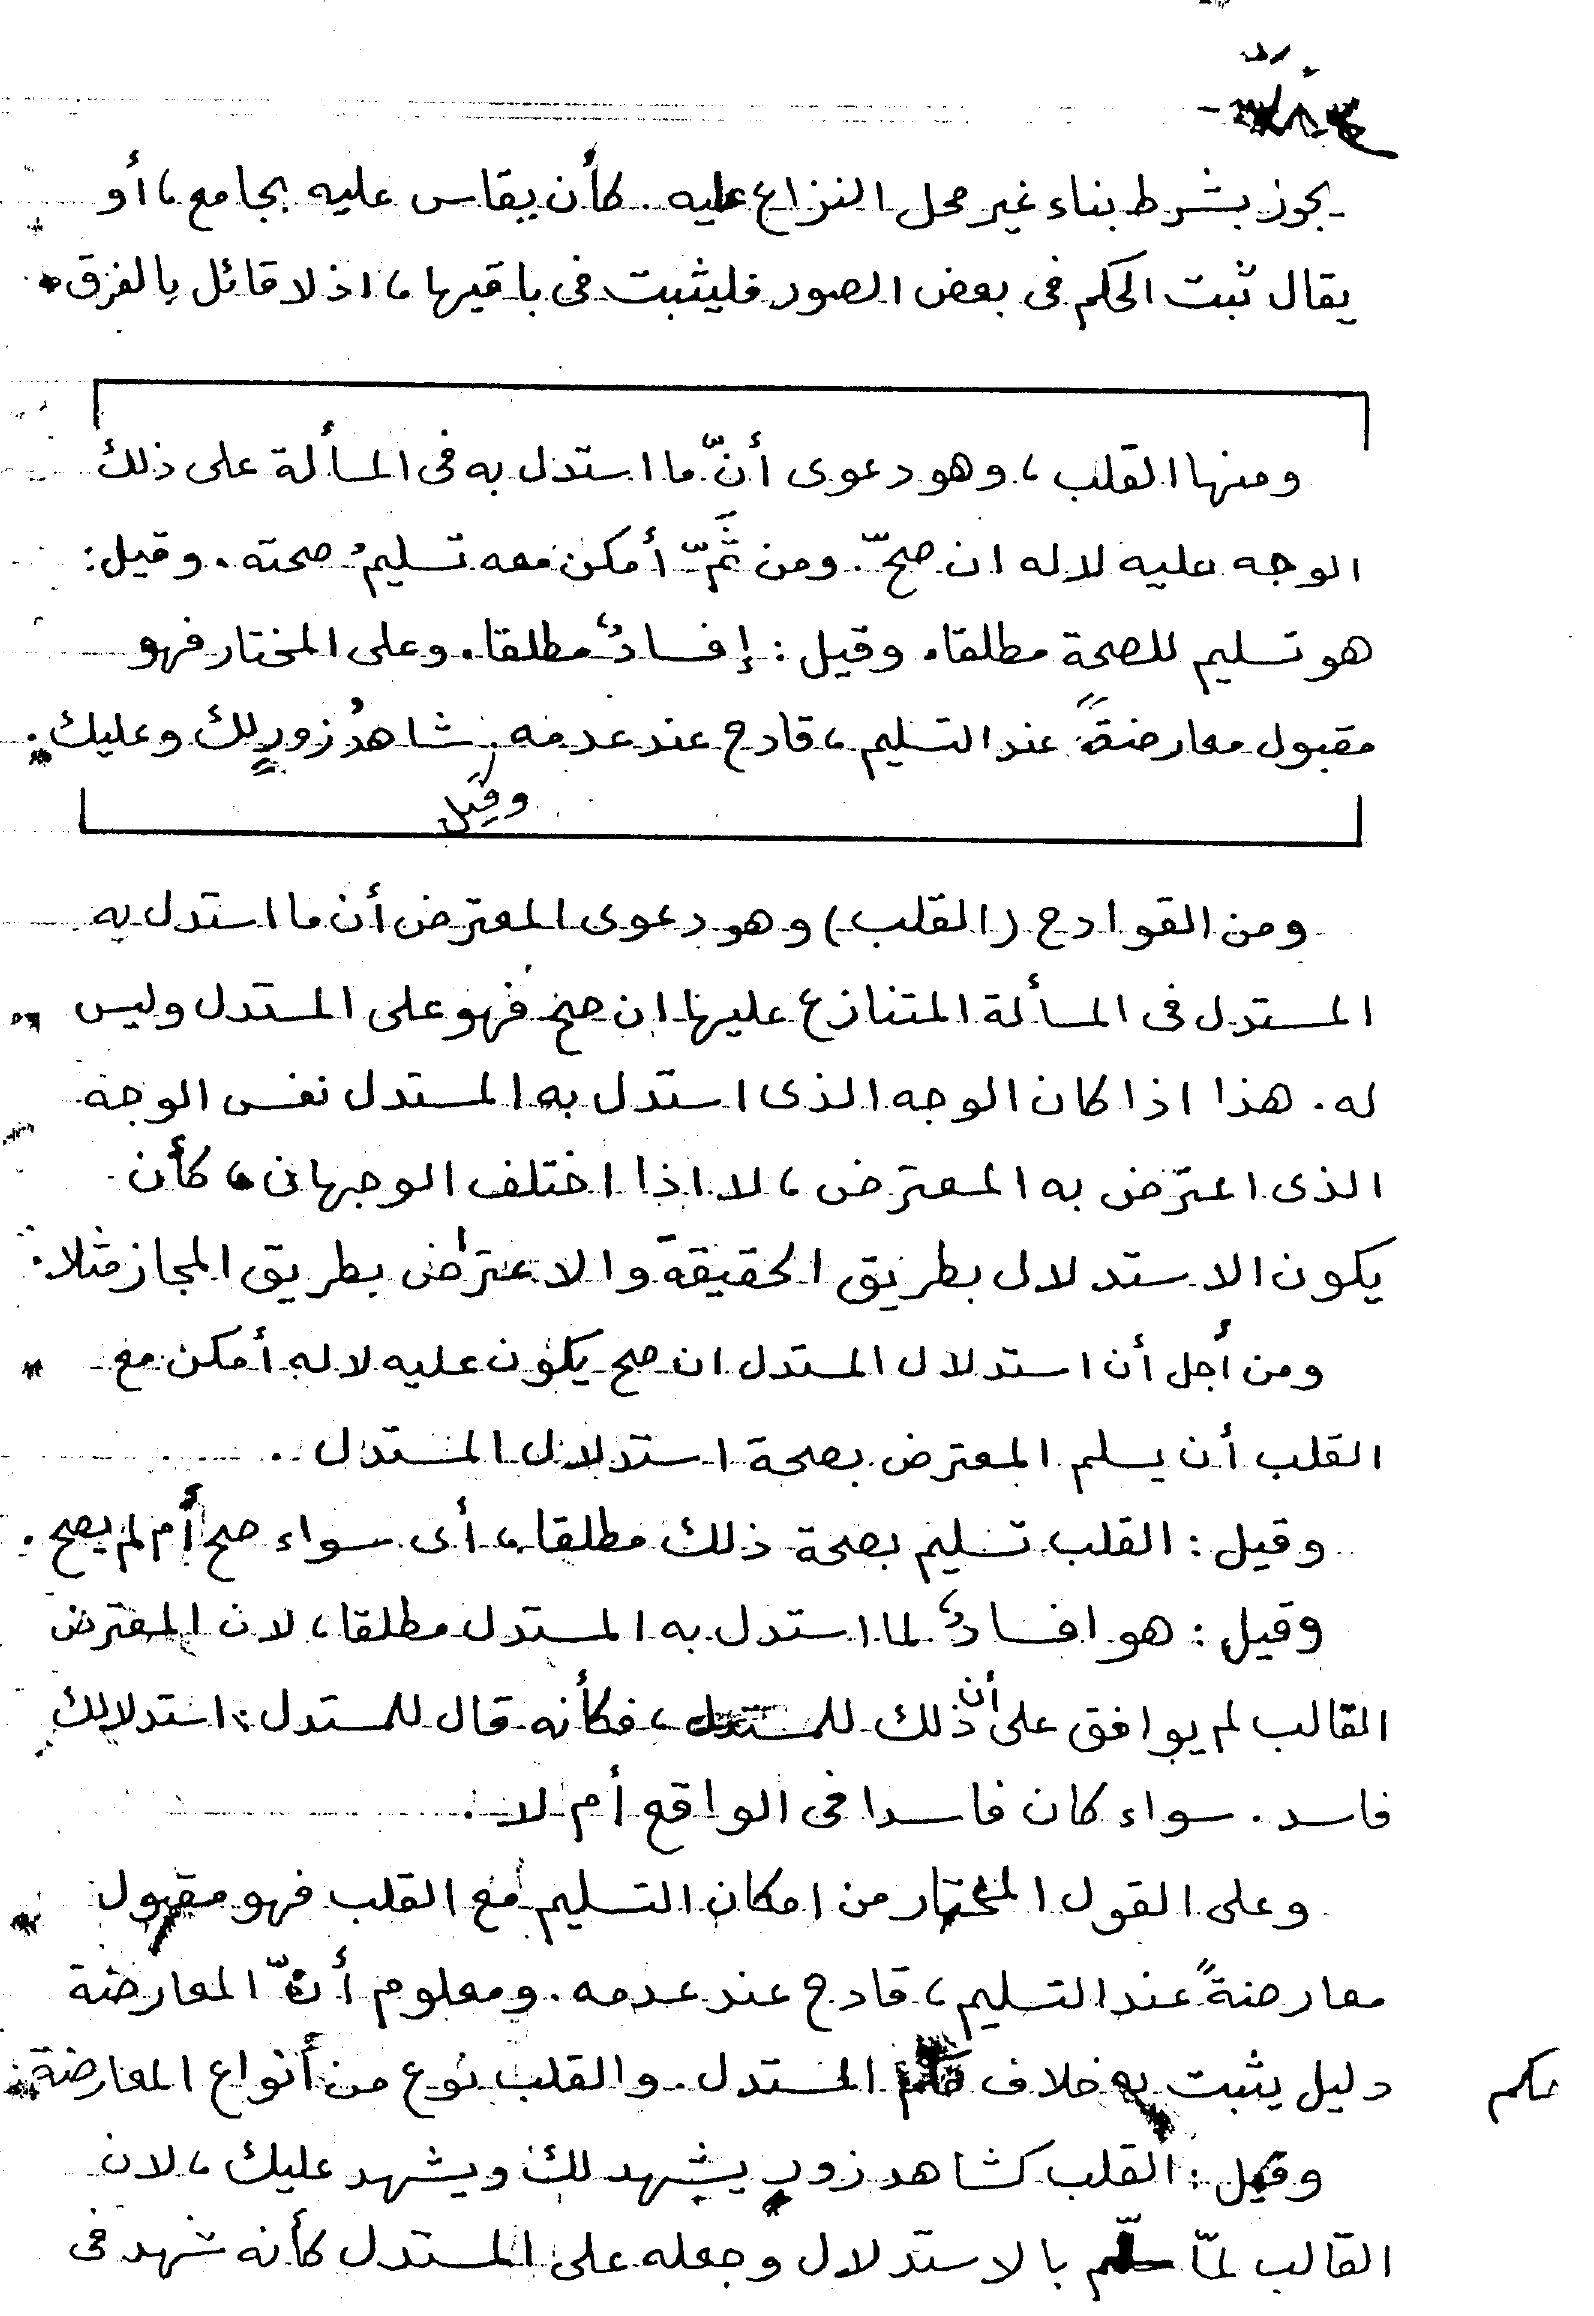 يجوز بشرط بناء غير محل النزاع عليه. كأن يقاس عليه بجامع، أو
يقال ثبت الحكم فى بعض الصور فليثبت فى باقيها، اذ لا قائل بالفرق.
ومنها القلب، وهو دعوى أنّ ما استدل به فى المسألة على ذلك
الوجه عليه لا له ان صحّ. ومن ثَمّ أمكن معه تسليمُ صحته. وقيل:
هو تسليم للصحة مطلقا. وقيل: إفسادٌ مطلقا. وعلى المختار فهو
مقبول معارضةً عند التسليم، قادح عند عدمه. وقيل شاهدُ زورٍ لك وعليك.
ومن القوادح (القلب) وهو دعوى المعترض أن ما استدل به
المستدل فى المسألة المتنازع عليها ان صح فهو على المستدل وليس
له. هذا اذا كان الوجه الذى استدل به المستدل نفس الوجه
الذى اعترض به المعترض، لا اذا اختلف الوجهان، كأن
يكون الاستدلال بطريق الحقيقة والاعتراض بطريق المجاز مثلا.
ومن أجل أن استدلال المستدل ان صح يكون عليه لا له أمكن مع
القلب أن يسلم المعترض بصحة استدلال المستدل.
وقيل: القلب تسليم بصحة ذلك مطلقا، أى سواء صح أم لم يصح.
وقيل: هو افسادٌ لما استدل به المستدل مطلقا، لان المعترض
القالب لم يوافق على أن ذلك للمستدل، فكأنه قال للمستدل: استدلالك
فاسد. سواء كان فاسدا فى الواقع أم لا.
وعلى القول المختار من امكان التسليم مع القلب فهو مقبول
معارضةً عند التسليم، قادح عند عدمه. ومعلوم أنّ المعارضة
دليل يثبت به خلاف حكم المستدل. والقلب نوع من أنواع المعارضة.
وقيل: القلب كشاهد زورٍ يشهد لك ويشهد عليك، لان
القالب لمّا سلّم بالاستدلال وجعله على المستدل كأنه شهد فى